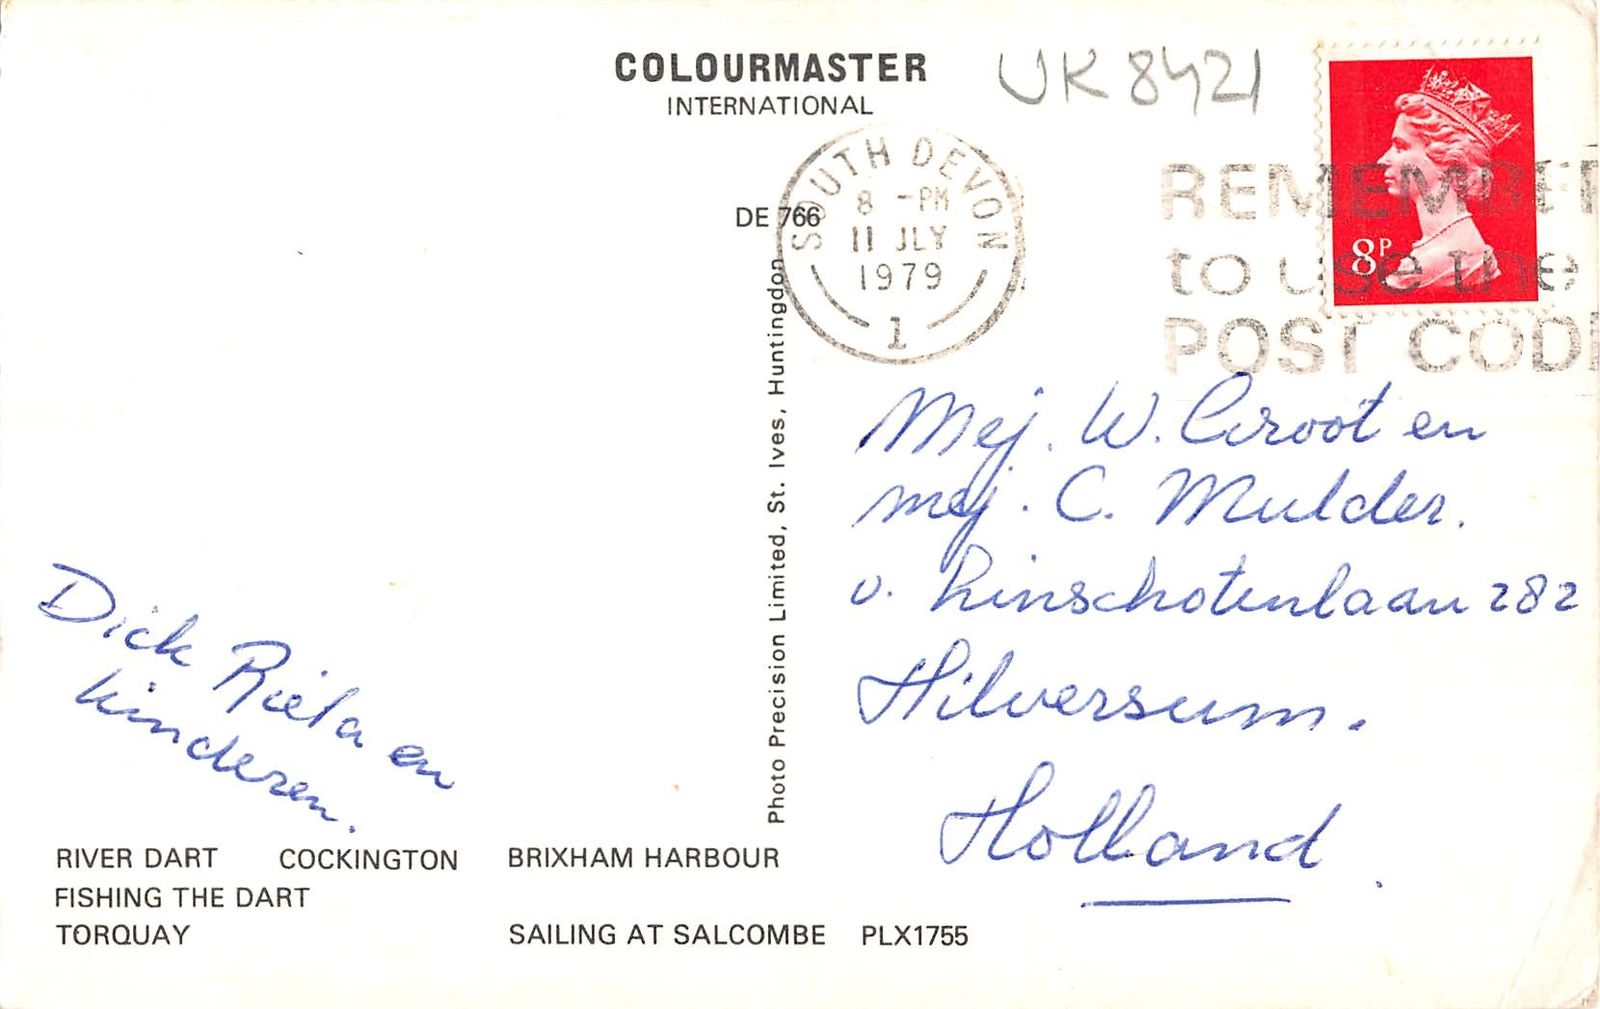 COLOURMASTER
INTERNATIONAL
UK 8421
SOUTH DEVON
8 -PM
11 JLY
1979
1
REMEMBER
to use the
POST CODE
8P
DE 766
Photo Precision Limited, St. Ives, Huntingdon
Mej. W. Groot en
mej. C. Mulder.
v. Linschotenlaan 282
Hilversum.
Holland.
Dick Riëta en
kinderen.
RIVER DART COCKINGTON BRIXHAM HARBOUR
FISHING THE DART
TORQUAY SAILING AT SALCOMBE PLX1755